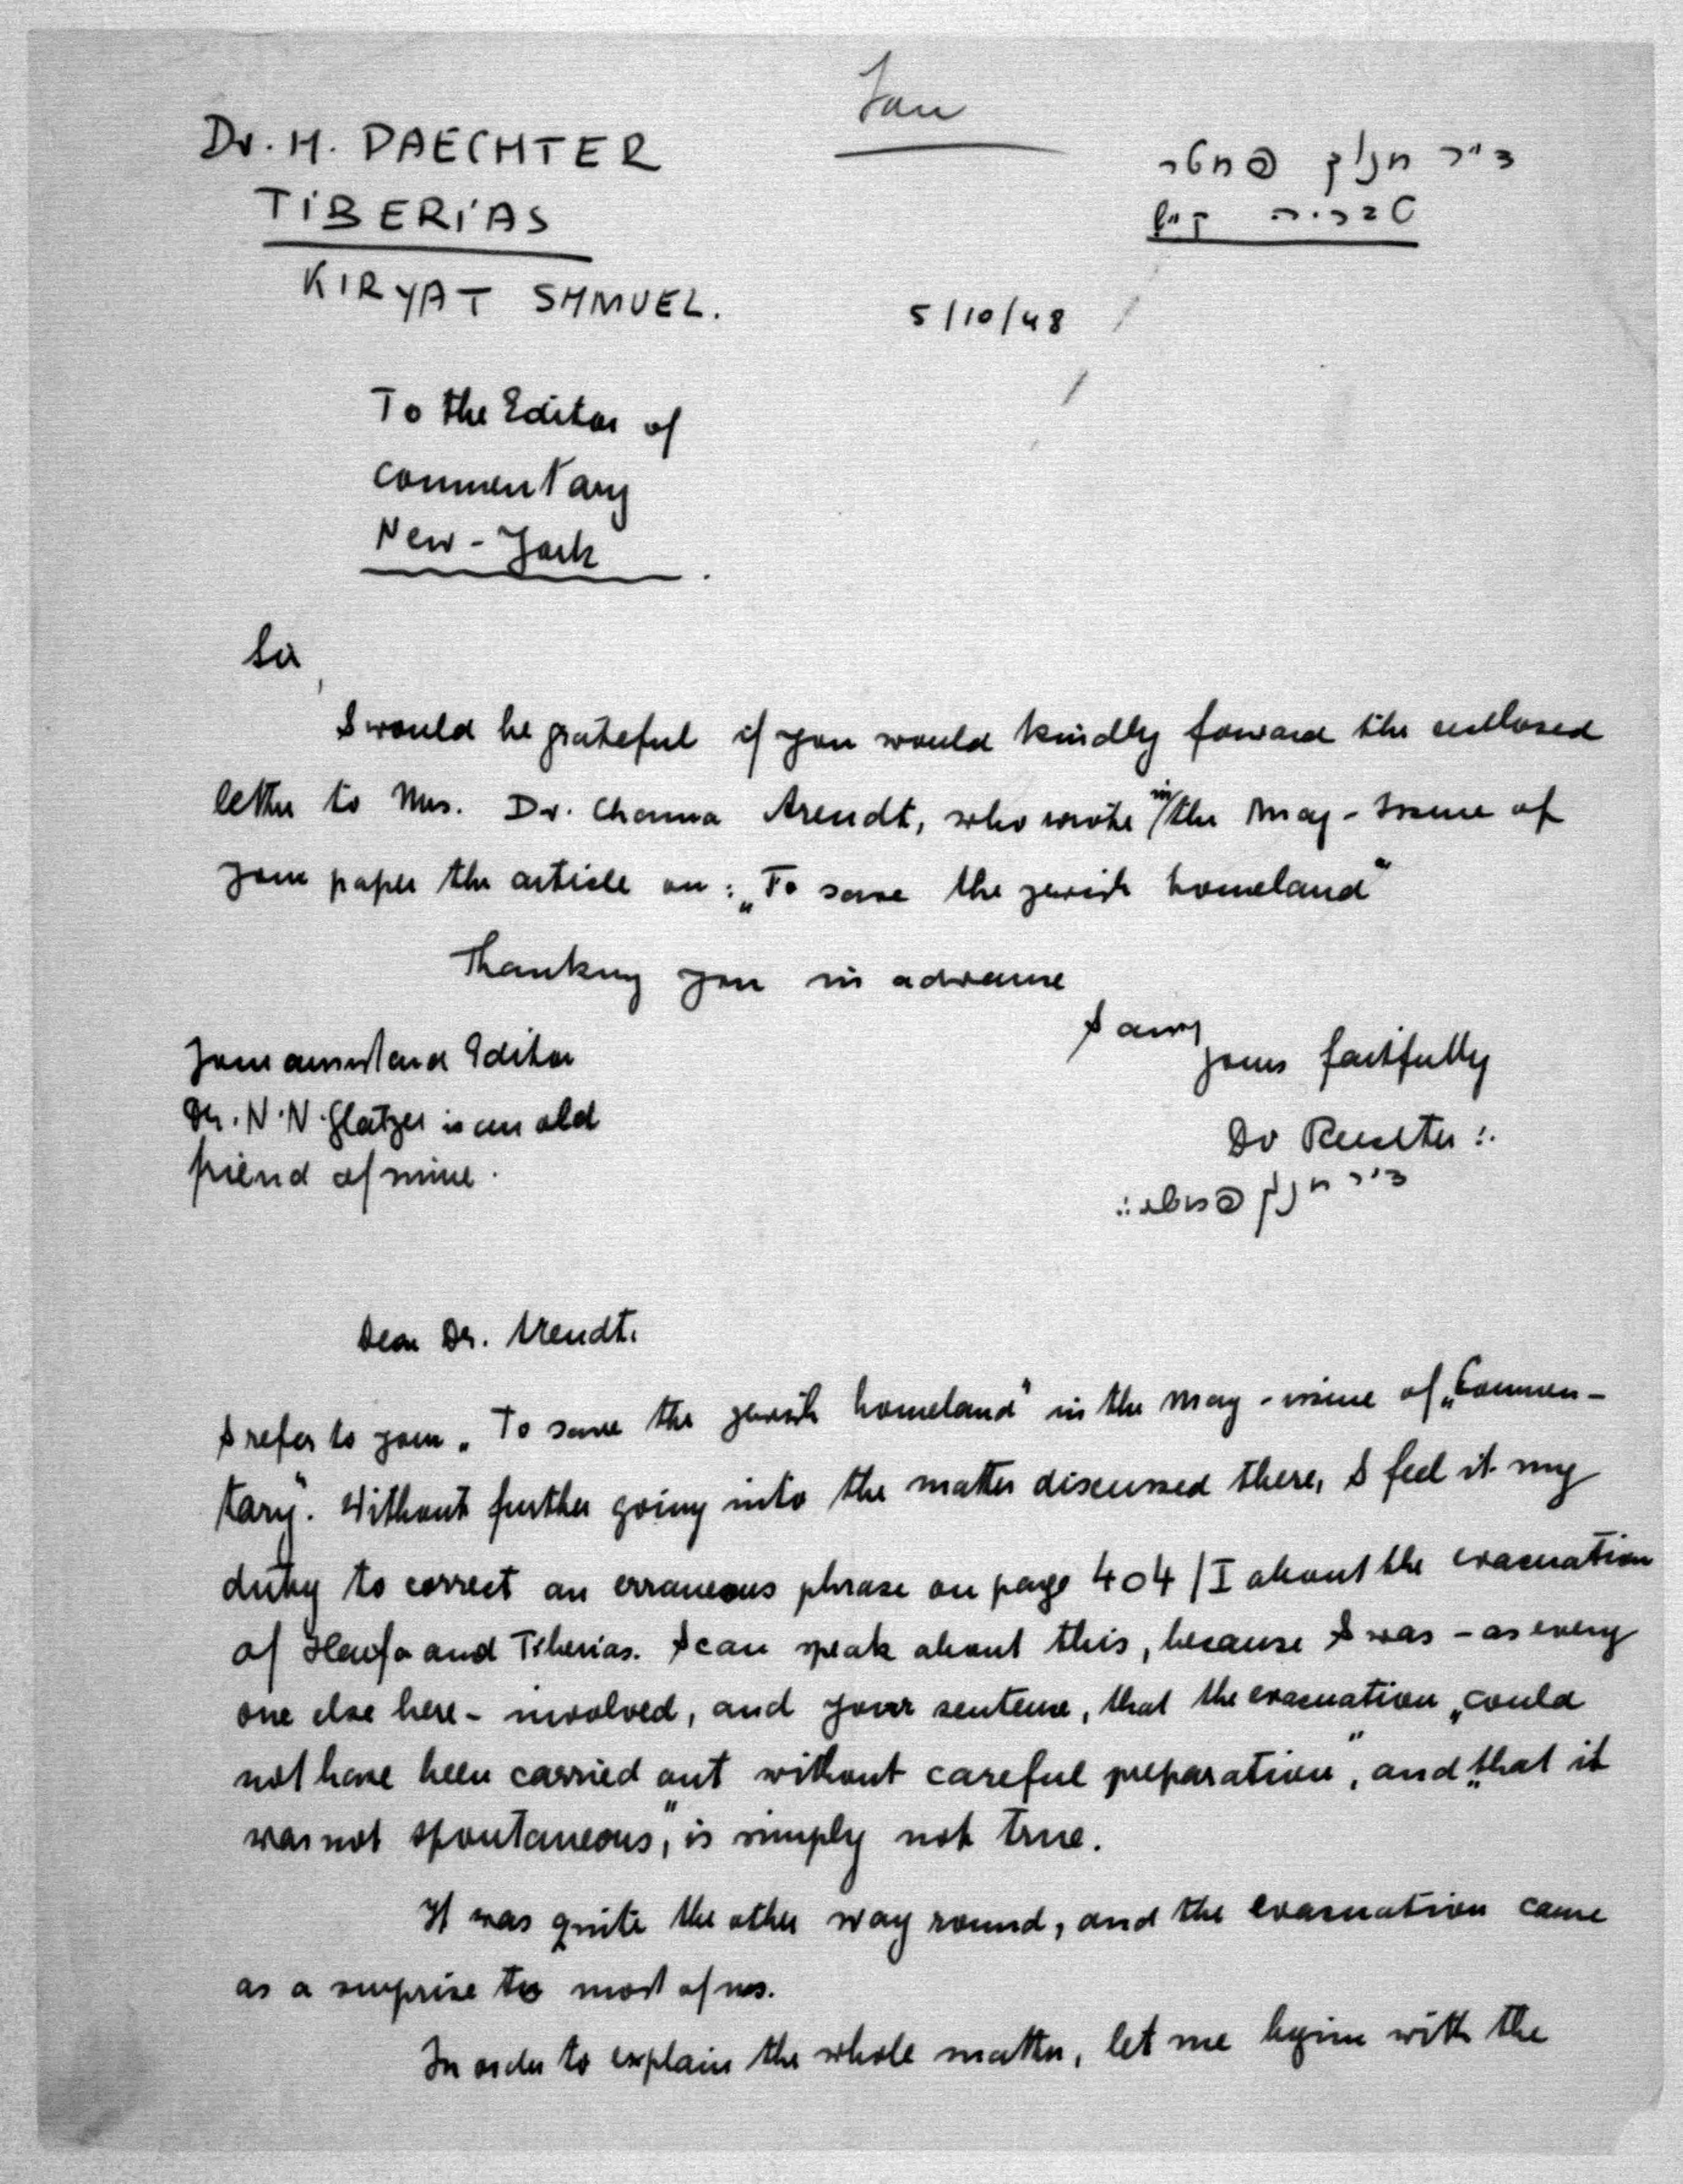 Dr. H. PAECHTER
TIBERIAS
KIRYAT SHMUEL.
ד"ר חנוך פכטר
טבריה ק"ש
5/10/48
To the Editor of
Commentary
New-York.
Sir,
I would be grateful if you would kindly foward the enclosed
letter to Mrs. Dr. Channa Arendt, who wrote in the May-Issue of
your paper the article on: „To save the jewish homeland"
Thanking you in advance
I am
yours faitfully
Dr Paechter
ד"ר חנוך פכטר
Your assistand Editor
Dr. N.N. Glatzer is an old
friend of mine.
Dear Dr. Arendt.
I refer to your „To save the jewish homeland" in the May-issue of „Commen-
tary". Without further going into the matter discussed there, I feel it my
duty to correct an erraneous phrase on page 404/I about the evacuation
of Haifa and Tiberias. I can speak about this, because I was - as every
one else here - involved, and your sentence, that the evacuation „could
not have been carried out without careful preparation", and „that it
was not spontaneous," is simply not true.
It was quite the other way round, and the evacuation came
as a surprise to most of us.
In order to explain the whole matter, let me begin with the